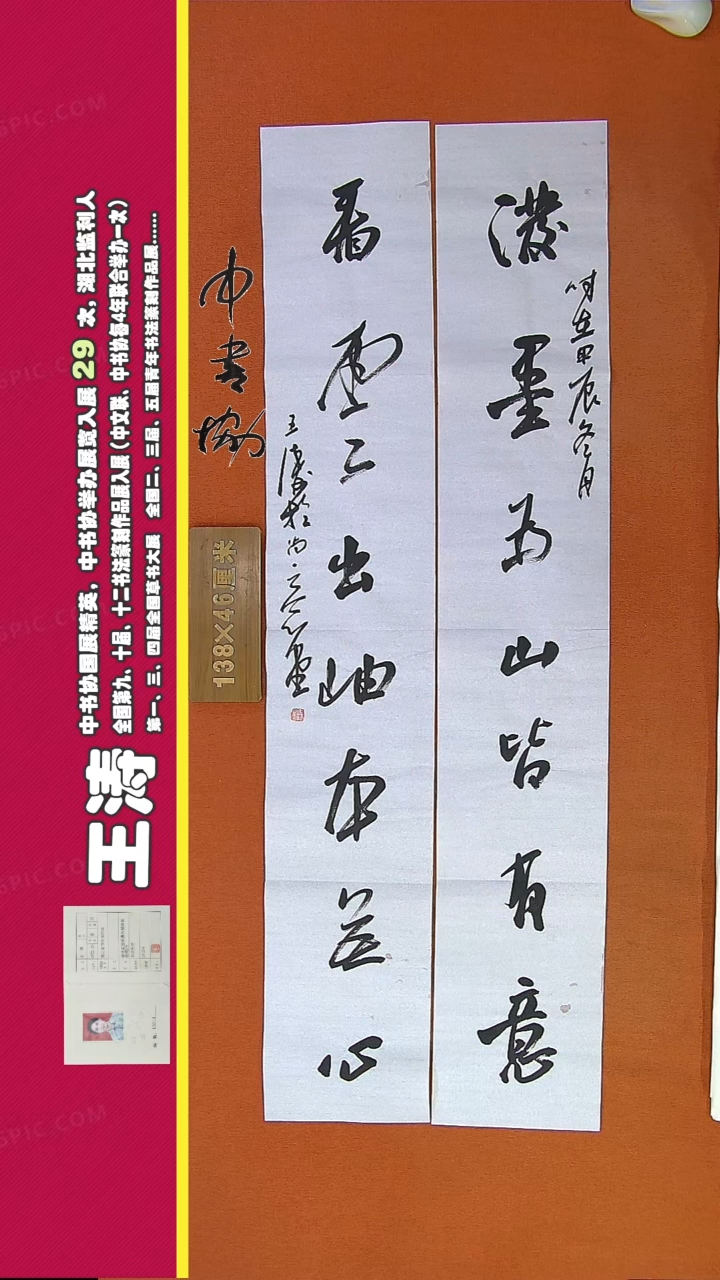 潑墨為山皆有意
時在甲辰冬月
看雲出岫本無心
王濤於尚
中書協
138×46厘米
王涛
中书协国展精英，中书协举办展览入展 29 次，湖北监利人
全国第九、十届、十二书法篆刻作品展入展（中文联、中书协每4年联合举办一次）
第一、三、四届全国草书大展 全国二、三届、五届青年书法篆刻作品展……